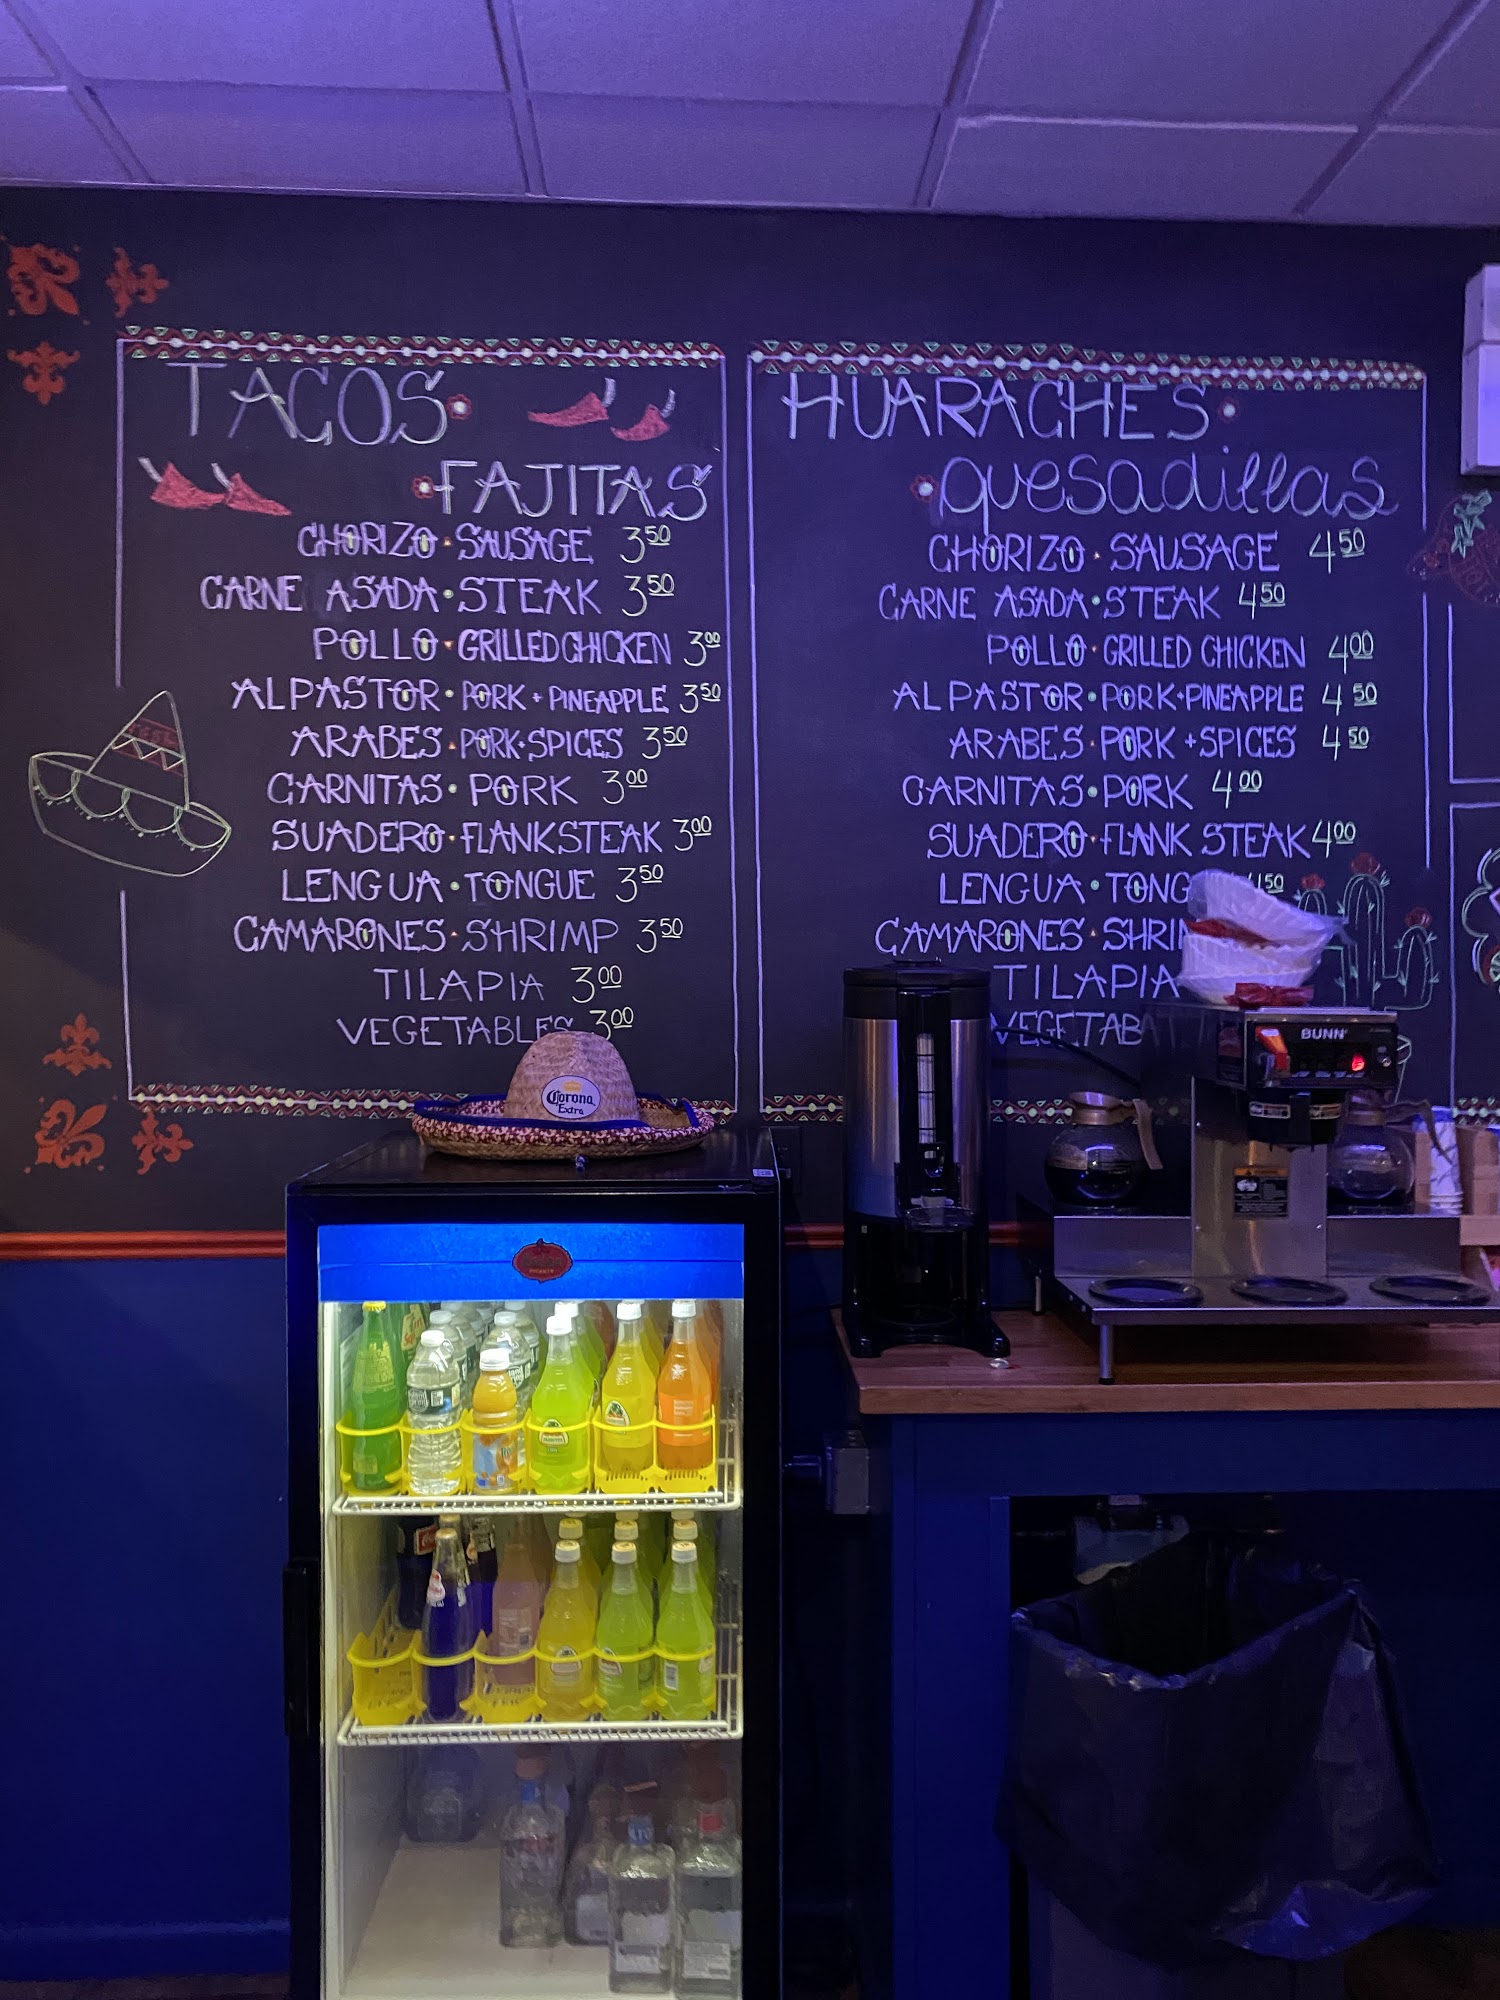 TACOS
FAJITAS
CHORIZO · SAUSAGE 3 50
CARNE ASADA · STEAK 3 50
POLLO · GRILLED CHICKEN 3 00
AL PASTOR · PORK + PINEAPPLE 3 50
ARABES · PORK + SPICES 3 50
CARNITAS · PORK 3 00
SUADERO · FLANK STEAK 3 00
LENGUA · TONGUE 3 50
CAMARONES · SHRIMP 3 50
TILAPIA 3 00
VEGETABLES 3 00
HUARACHES
quesadillas
CHORIZO · SAUSAGE 4 50
CARNE ASADA · STEAK 4 50
POLLO · GRILLED CHICKEN 4 00
AL PASTOR · PORK + PINEAPPLE 4 50
ARABES · PORK + SPICES 4 50
CARNITAS · PORK 4 00
SUADERO · FLANK STEAK 4 00
LENGUA · TONG 4 50
CAMARONES · SHRIM
TILAPIA
VEGETAB
Corona
Extra
BUNN